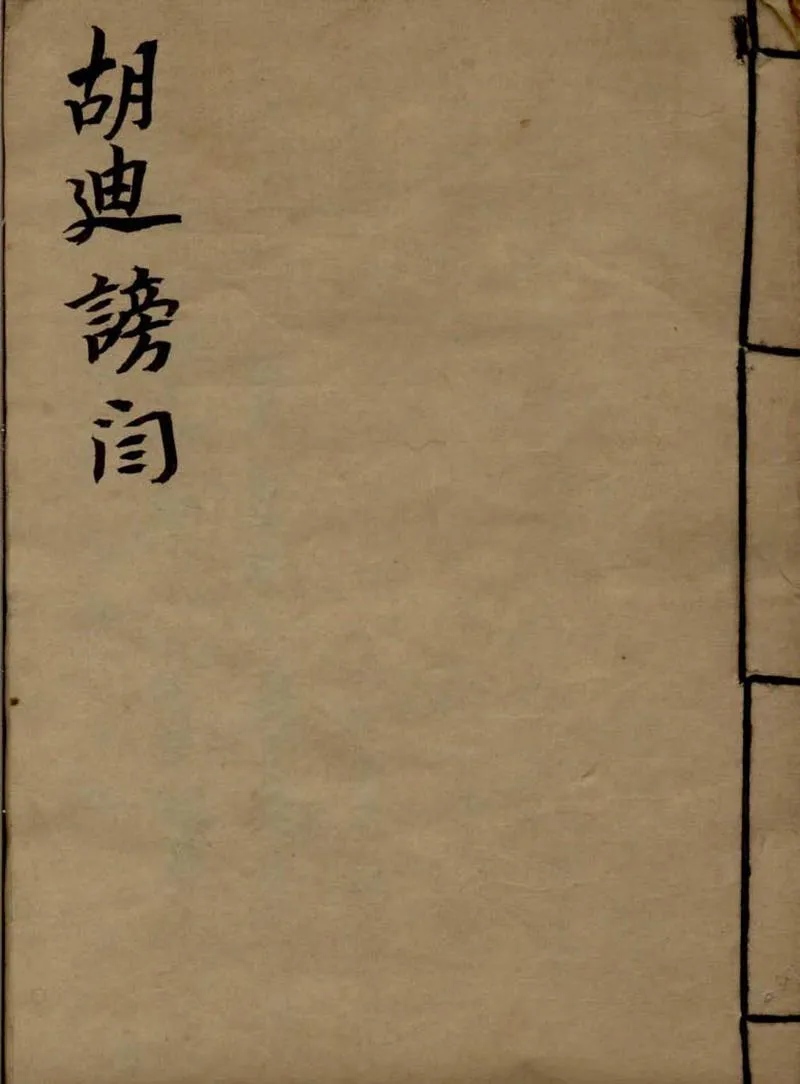 胡迪謗闫